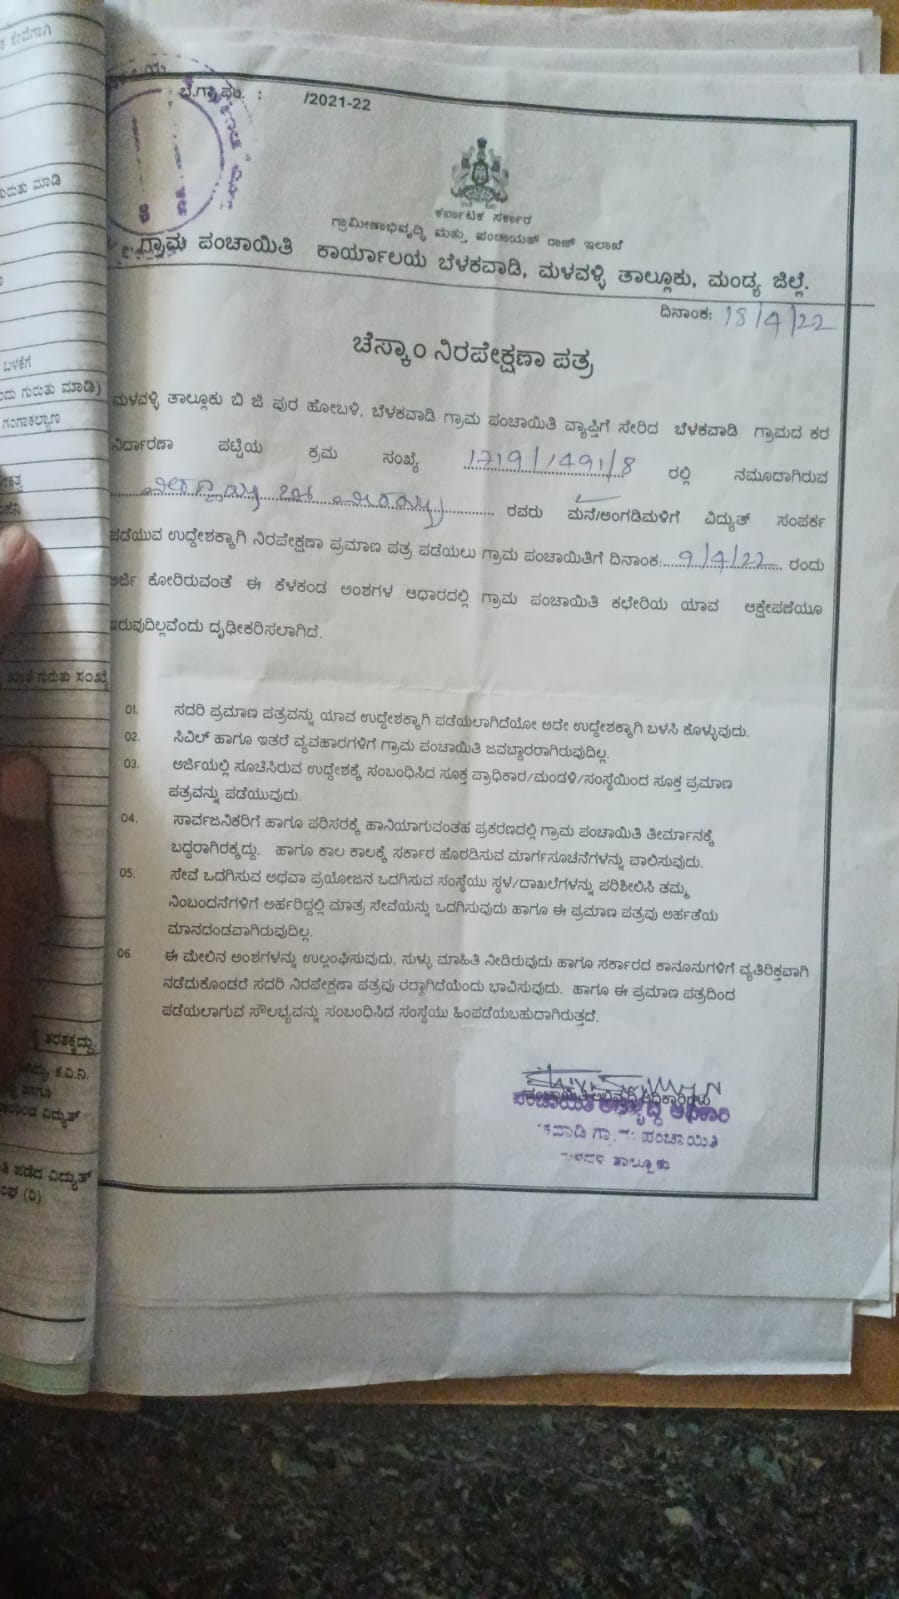 ಬೆ.ಗ್ರಾ.ಪಂ. : /2021-22
ಕರ್ನಾಟಕ ಸರ್ಕಾರ
ಗ್ರಾಮೀಣಾಭಿವೃದ್ಧಿ ಮತ್ತು ಪಂಚಾಯತ್ ರಾಜ್ ಇಲಾಖೆ
ಗ್ರಾಮ ಪಂಚಾಯಿತಿ ಕಾರ್ಯಾಲಯ ಬೆಳಕವಾಡಿ, ಮಳವಳ್ಳಿ ತಾಲ್ಲೂಕು, ಮಂಡ್ಯ ಜಿಲ್ಲೆ.
ದಿನಾಂಕ: 18/4/22
ಚೆಸ್ಕಾಂ ನಿರಪೇಕ್ಷಣಾ ಪತ್ರ
ಮಳವಳ್ಳಿ ತಾಲ್ಲೂಕು ಬಿ ಜಿ ಪುರ ಹೋಬಳಿ, ಬೆಳಕವಾಡಿ ಗ್ರಾಮ ಪಂಚಾಯಿತಿ ವ್ಯಾಪ್ತಿಗೆ ಸೇರಿದ ಬೆಳಕವಾಡಿ ಗ್ರಾಮದ ಕರ
ನಿರ್ದಾರಣಾ ಪಟ್ಟಿಯ ಕ್ರಮ ಸಂಖ್ಯೆ 1719/1491/8 ರಲ್ಲಿ ನಮೂದಾಗಿರುವ
ರವರು ಮನೆ/ಅಂಗಡಿಮಳಿಗೆ ವಿದ್ಯುತ್ ಸಂಪರ್ಕ
ಪಡೆಯುವ ಉದ್ದೇಶಕ್ಕಾಗಿ ನಿರಪೇಕ್ಷಣಾ ಪ್ರಮಾಣ ಪತ್ರ ಪಡೆಯಲು ಗ್ರಾಮ ಪಂಚಾಯಿತಿಗೆ ದಿನಾಂಕ:.....9/4/22..... ರಂದು
ಅರ್ಜಿ ಕೋರಿರುವಂತೆ ಈ ಕೆಳಕಂಡ ಅಂಶಗಳ ಆಧಾರದಲ್ಲಿ ಗ್ರಾಮ ಪಂಚಾಯಿತಿ ಕಛೇರಿಯ ಯಾವ ಆಕ್ಷೇಪಣೆಯೂ
ಇರುವುದಿಲ್ಲವೆಂದು ದೃಢೀಕರಿಸಲಾಗಿದೆ.
01. ಸದರಿ ಪ್ರಮಾಣ ಪತ್ರವನ್ನು ಯಾವ ಉದ್ದೇಶಕ್ಕಾಗಿ ಪಡೆಯಲಾಗಿದೆಯೋ ಅದೇ ಉದ್ದೇಶಕ್ಕಾಗಿ ಬಳಸಿ ಕೊಳ್ಳುವುದು.
02. ಸಿವಿಲ್ ಹಾಗೂ ಇತರೆ ವ್ಯವಹಾರಗಳಿಗೆ ಗ್ರಾಮ ಪಂಚಾಯಿತಿ ಜವಬ್ದಾರರಾಗಿರುವುದಿಲ್ಲ.
03. ಅರ್ಜಿಯಲ್ಲಿ ಸೂಚಿಸಿರುವ ಉದ್ದೇಶಕ್ಕೆ ಸಂಬಂಧಿಸಿದ ಸೂಕ್ತ ಪ್ರಾಧಿಕಾರ/ಮಂಡಳಿ/ಸಂಸ್ಥೆಯಿಂದ ಸೂಕ್ತ ಪ್ರಮಾಣ
ಪತ್ರವನ್ನು ಪಡೆಯುವುದು.
04. ಸಾರ್ವಜನಿಕರಿಗೆ ಹಾಗೂ ಪರಿಸರಕ್ಕೆ ಹಾನಿಯಾಗುವಂತಹ ಪ್ರಕರಣದಲ್ಲಿ ಗ್ರಾಮ ಪಂಚಾಯಿತಿ ತೀರ್ಮಾನಕ್ಕೆ
ಬದ್ದರಾಗಿರಕ್ಕದ್ದು. ಹಾಗೂ ಕಾಲ ಕಾಲಕ್ಕೆ ಸರ್ಕಾರ ಹೊರಡಿಸುವ ಮಾರ್ಗಸೂಚನೆಗಳನ್ನು ಪಾಲಿಸುವುದು.
05. ಸೇವೆ ಒದಗಿಸುವ ಅಥವಾ ಪ್ರಯೋಜನ ಒದಗಿಸುವ ಸಂಸ್ಥೆಯು ಸ್ಥಳ/ದಾಖಲೆಗಳನ್ನು ಪರಿಶೀಲಿಸಿ ತಮ್ಮ
ನಿಂಬಂದನೆಗಳಿಗೆ ಅರ್ಹರಿದ್ದಲ್ಲಿ ಮಾತ್ರ ಸೇವೆಯನ್ನು ಒದಗಿಸುವುದು ಹಾಗೂ ಈ ಪ್ರಮಾಣ ಪತ್ರವು ಅರ್ಹತೆಯ
ಮಾನದಂಡವಾಗಿರುವುದಿಲ್ಲ.
06 ಈ ಮೇಲಿನ ಅಂಶಗಳನ್ನು ಉಲ್ಲಂಘಿಸುವುದು, ಸುಳ್ಳು ಮಾಹಿತಿ ನೀಡಿರುವುದು ಹಾಗೂ ಸರ್ಕಾರದ ಕಾನೂನುಗಳಿಗೆ ವ್ಯತಿರಿಕ್ತವಾಗಿ
ನಡೆದುಕೊಂಡರೆ ಸದರಿ ನಿರಪೇಕ್ಷಣಾ ಪತ್ರವು ರದ್ದಾಗಿದೆಯೆಂದು ಭಾವಿಸುವುದು. ಹಾಗೂ ಈ ಪ್ರಮಾಣ ಪತ್ರದಿಂದ
ಪಡೆಯಲಾಗುವ ಸೌಲಭ್ಯವನ್ನು ಸಂಬಂಧಿಸಿದ ಸಂಸ್ಥೆಯು ಹಿಂಪಡೆಯಬಹುದಾಗಿರುತ್ತದೆ.
ಪಂಚಾಯಿತಿ ಅಭಿವೃದ್ಧಿ ಅಧಿಕಾರಿ
ಗ್ರಾ ಪಂಚಾಯಿತಿ
ತಾಲ್ಲೂಕು